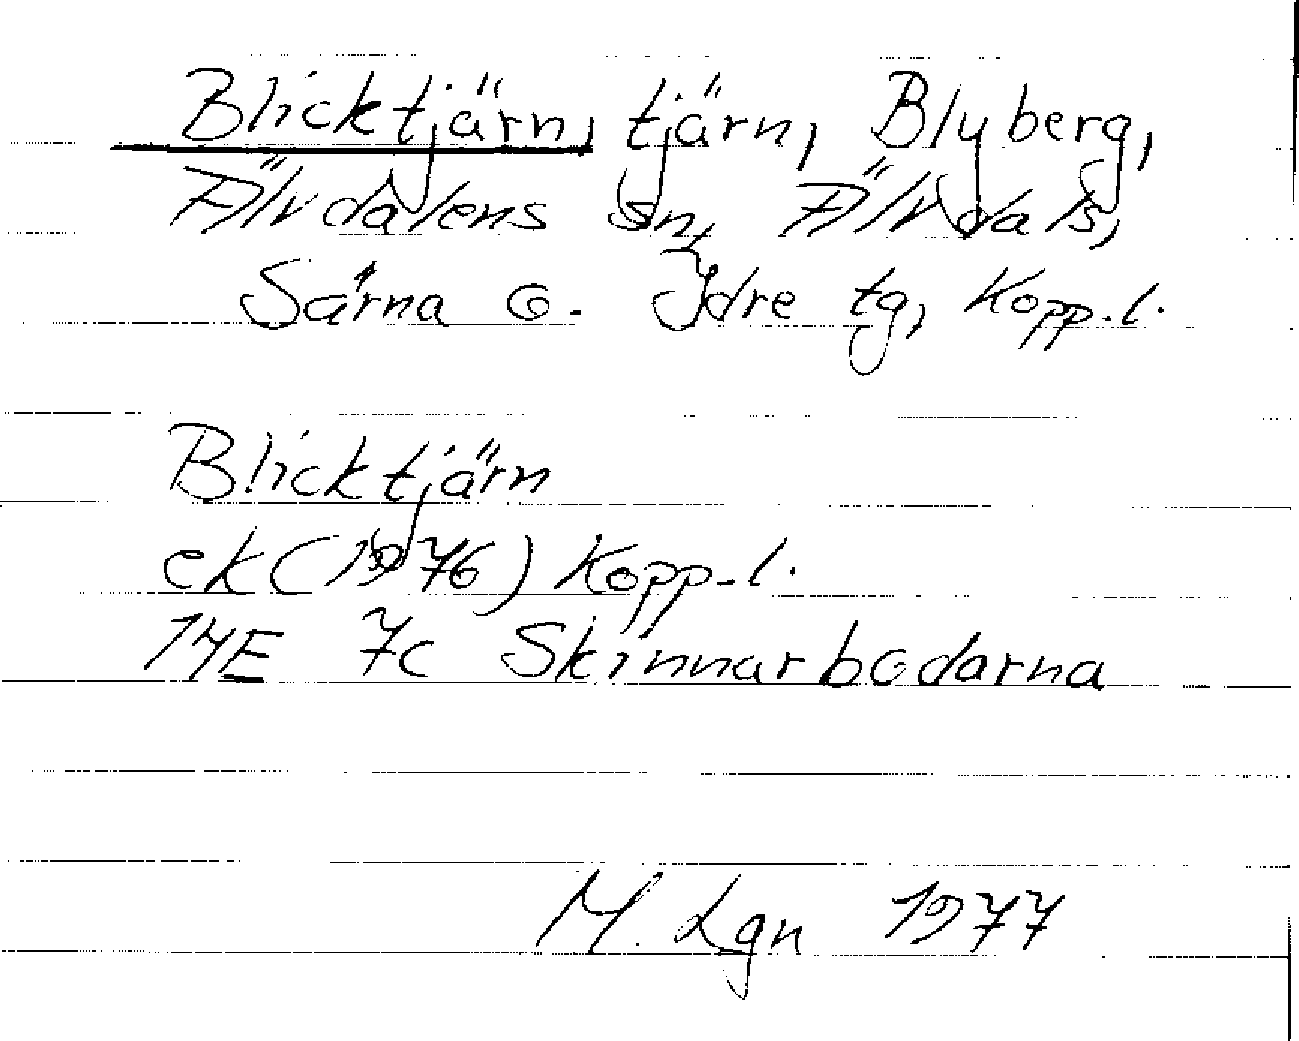 Blicktjärn, tjärn, Blyberg,
Älvdalens sn, Älvdals,
Särna o. Idre tg, Kopp.l.
Blicktjärn
ek (1976) Kopp.l.
14E 7c Skinnarbodarna
M. Lgn 1977